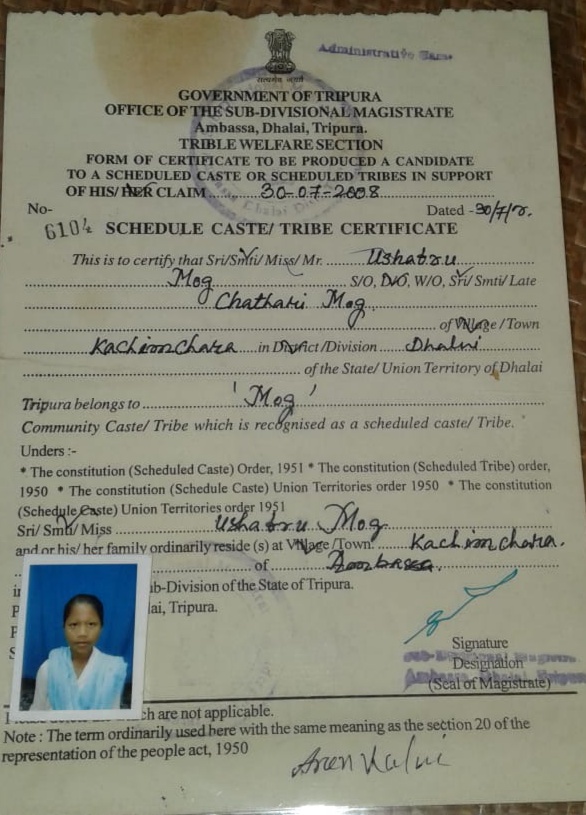 सत्यमेव जयते
Administrative
GOVERNMENT OF TRIPURA
OFFICE OF THE SUB-DIVISIONAL MAGISTRATE
Ambassa, Dhalai, Tripura.
TRIBLE WELFARE SECTION
FORM OF CERTIFICATE TO BE PRODUCED A CANDIDATE
TO A SCHEDULED CASTE OR SCHEDULED TRIBES IN SUPPORT
OF HIS/HER CLAIM 30-07-2008
No- Dated - 30/7/
6104 SCHEDULE CASTE/ TRIBE CERTIFICATE
This is to certify that Sri/Smti/ Miss/ Mr. Ushatru
Mog S/O, D/O, W/O, Sri/ Smti/ Late
Chathari Mog
of Village / Town
Kachimchara in District /Division Dhalai
of the State/ Union Territory of Dhalai
Tripura belongs to 'Mog'
Community Caste/ Tribe which is recognised as a scheduled caste/ Tribe.
Unders :-
* The constitution (Scheduled Caste) Order, 1951 * The constitution (Scheduled Tribe) order,
1950 * The constitution (Schedule Caste) Union Territories order 1950 * The constitution
(Schedule Caste) Union Territories order 1951
Sri/ Smti/ Miss Ushatru Mog
and or his/ her family ordinarily reside (s) at Village /Town. Kachimchara.
of Ambassa.
ub-Division of the State of Tripura.
lai, Tripura.
Signature
Designation
(Seal of Magistrate)
Sub-Divisional Magistrate
Ambassa, Dhalai, Tripura
which are not applicable.
Note : The term ordinarily used here with the same meaning as the section 20 of the
representation of the people act, 1950